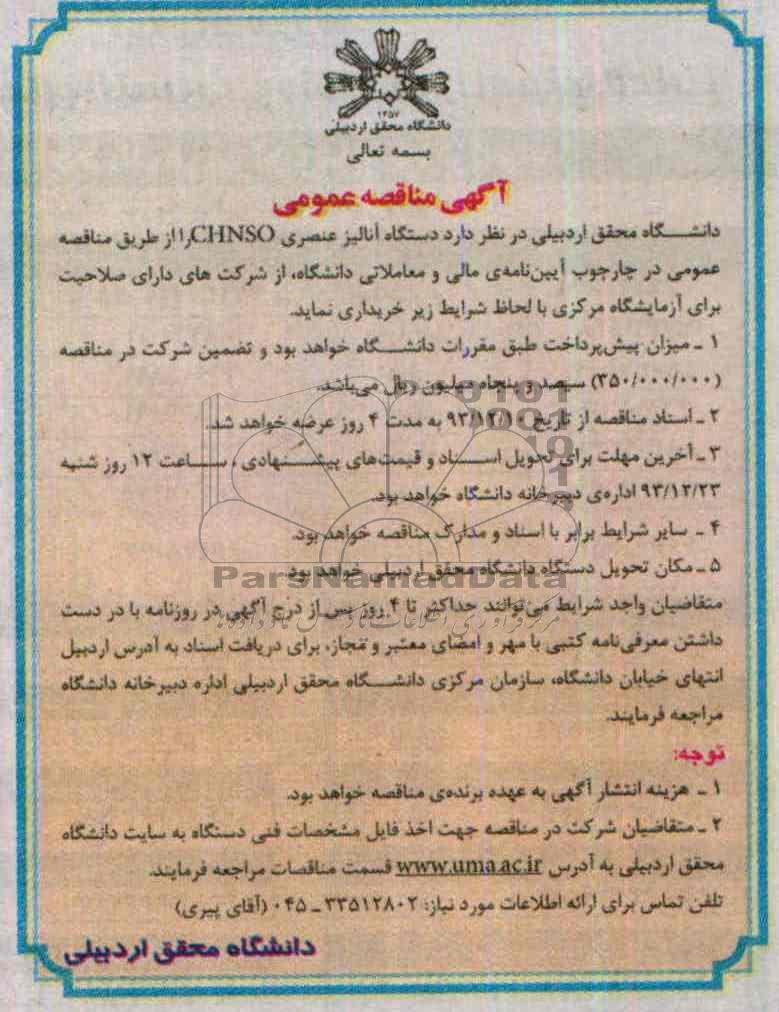 ۱۳۵۷
دانشگاه محقق اردبیلی
بسمه تعالی
آگهی مناقصه عمومی
دانشگاه محقق اردبیلی در نظر دارد دستگاه آنالیز عنصری CHNSO را از طریق مناقصه
عمومی در چارچوب آیین‌نامه‌ی مالی و معاملاتی دانشگاه، از شرکت های دارای صلاحیت
برای آزمایشگاه مرکزی با لحاظ شرایط زیر خریداری نماید.
۱ ـ میزان پیش‌پرداخت طبق مقررات دانشگاه خواهد بود و تضمین شرکت در مناقصه
(۳۵۰/۰۰۰/۰۰۰) سیصد و پنجاه میلیون ریال می‌باشد.
۲ ـ اسناد مناقصه از تاریخ ۹۳/۱۲/۱۰ به مدت ۴ روز عرضه خواهد شد.
۳ ـ آخرین مهلت برای تحویل اسناد و قیمت‌های پیشنهادی ، ساعت ۱۲ روز شنبه
۹۳/۱۲/۲۳ اداره‌ی دبیرخانه دانشگاه خواهد بود.
۴ ـ سایر شرایط برابر با اسناد و مدارک مناقصه خواهد بود.
۵ ـ مکان تحویل دستگاه دانشگاه محقق اردبیلی خواهد بود.
ParsNamadData
متقاضیان واجد شرایط می‌توانند حداکثر تا ۴ روز پس از درج آگهی در روزنامه با در دست
داشتن معرفی‌نامه کتبی با مهر و امضای معتبر و مجاز، برای دریافت اسناد به آدرس اردبیل
انتهای خیابان دانشگاه، سازمان مرکزی دانشگاه محقق اردبیلی اداره دبیرخانه دانشگاه
مراجعه فرمایند.
توجه:
۱ ـ هزینه انتشار آگهی به عهده برنده‌ی مناقصه خواهد بود.
۲ ـ متقاضیان شرکت در مناقصه جهت اخذ فایل مشخصات فنی دستگاه به سایت دانشگاه
محقق اردبیلی به آدرس www.uma.ac.ir قسمت مناقصات مراجعه فرمایند.
تلفن تماس برای ارائه اطلاعات مورد نیاز: ۳۳۵۱۲۸۰۲ ـ ۰۴۵ (آقای پیری)
دانشگاه محقق اردبیلی